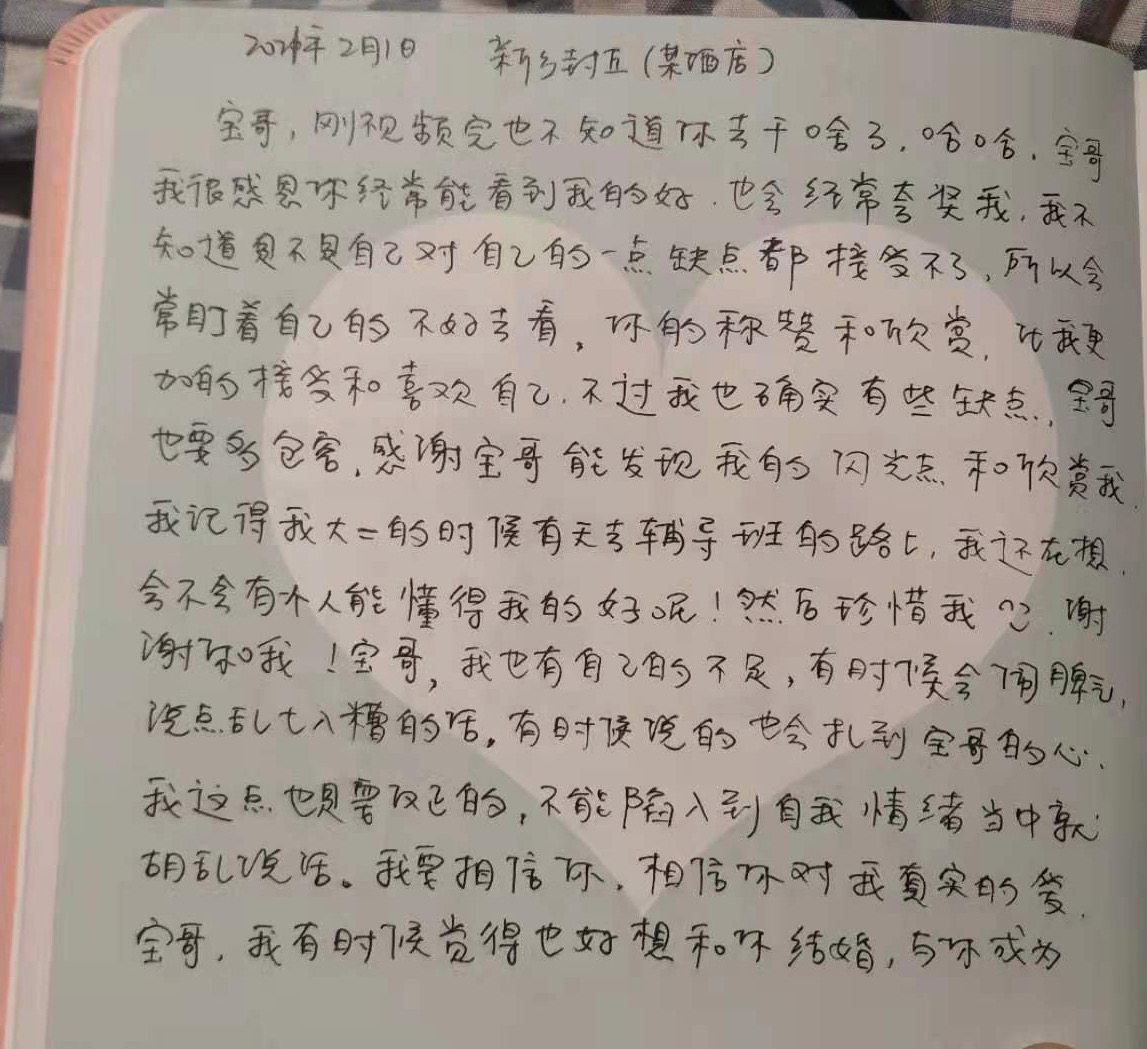 2021年2月1日 新乡封丘(某酒店)
宝哥,刚视频完也不知道你去干啥了,哈哈,宝哥
我很感恩你经常能看到我的好,也会经常夸奖我,我不
知道是不是自己对自己的一点缺点都接受不了,所以会
常盯着自己的不好去看,你的称赞和欣赏,让我更
加的接受和喜欢自己.不过我也确实有些缺点,宝哥
也要多包容,感谢宝哥能发现我的闪光点和欣赏我.
我记得我大二的时候有天去辅导班的路上,我还在想,
会不会有个人能懂得我的好呢!然后珍惜我,谢
谢你和我!宝哥,我也有自己的不足,有时候会闹脾气,
说点乱七八糟的话。有时候说的也会扎到宝哥的心,
我这点也是要改正的,不能陷入到自我情绪当中就
胡乱说话。我要相信你,相信你对我真实的爱.
宝哥,我有时候觉得也好想和你结婚,与你成为